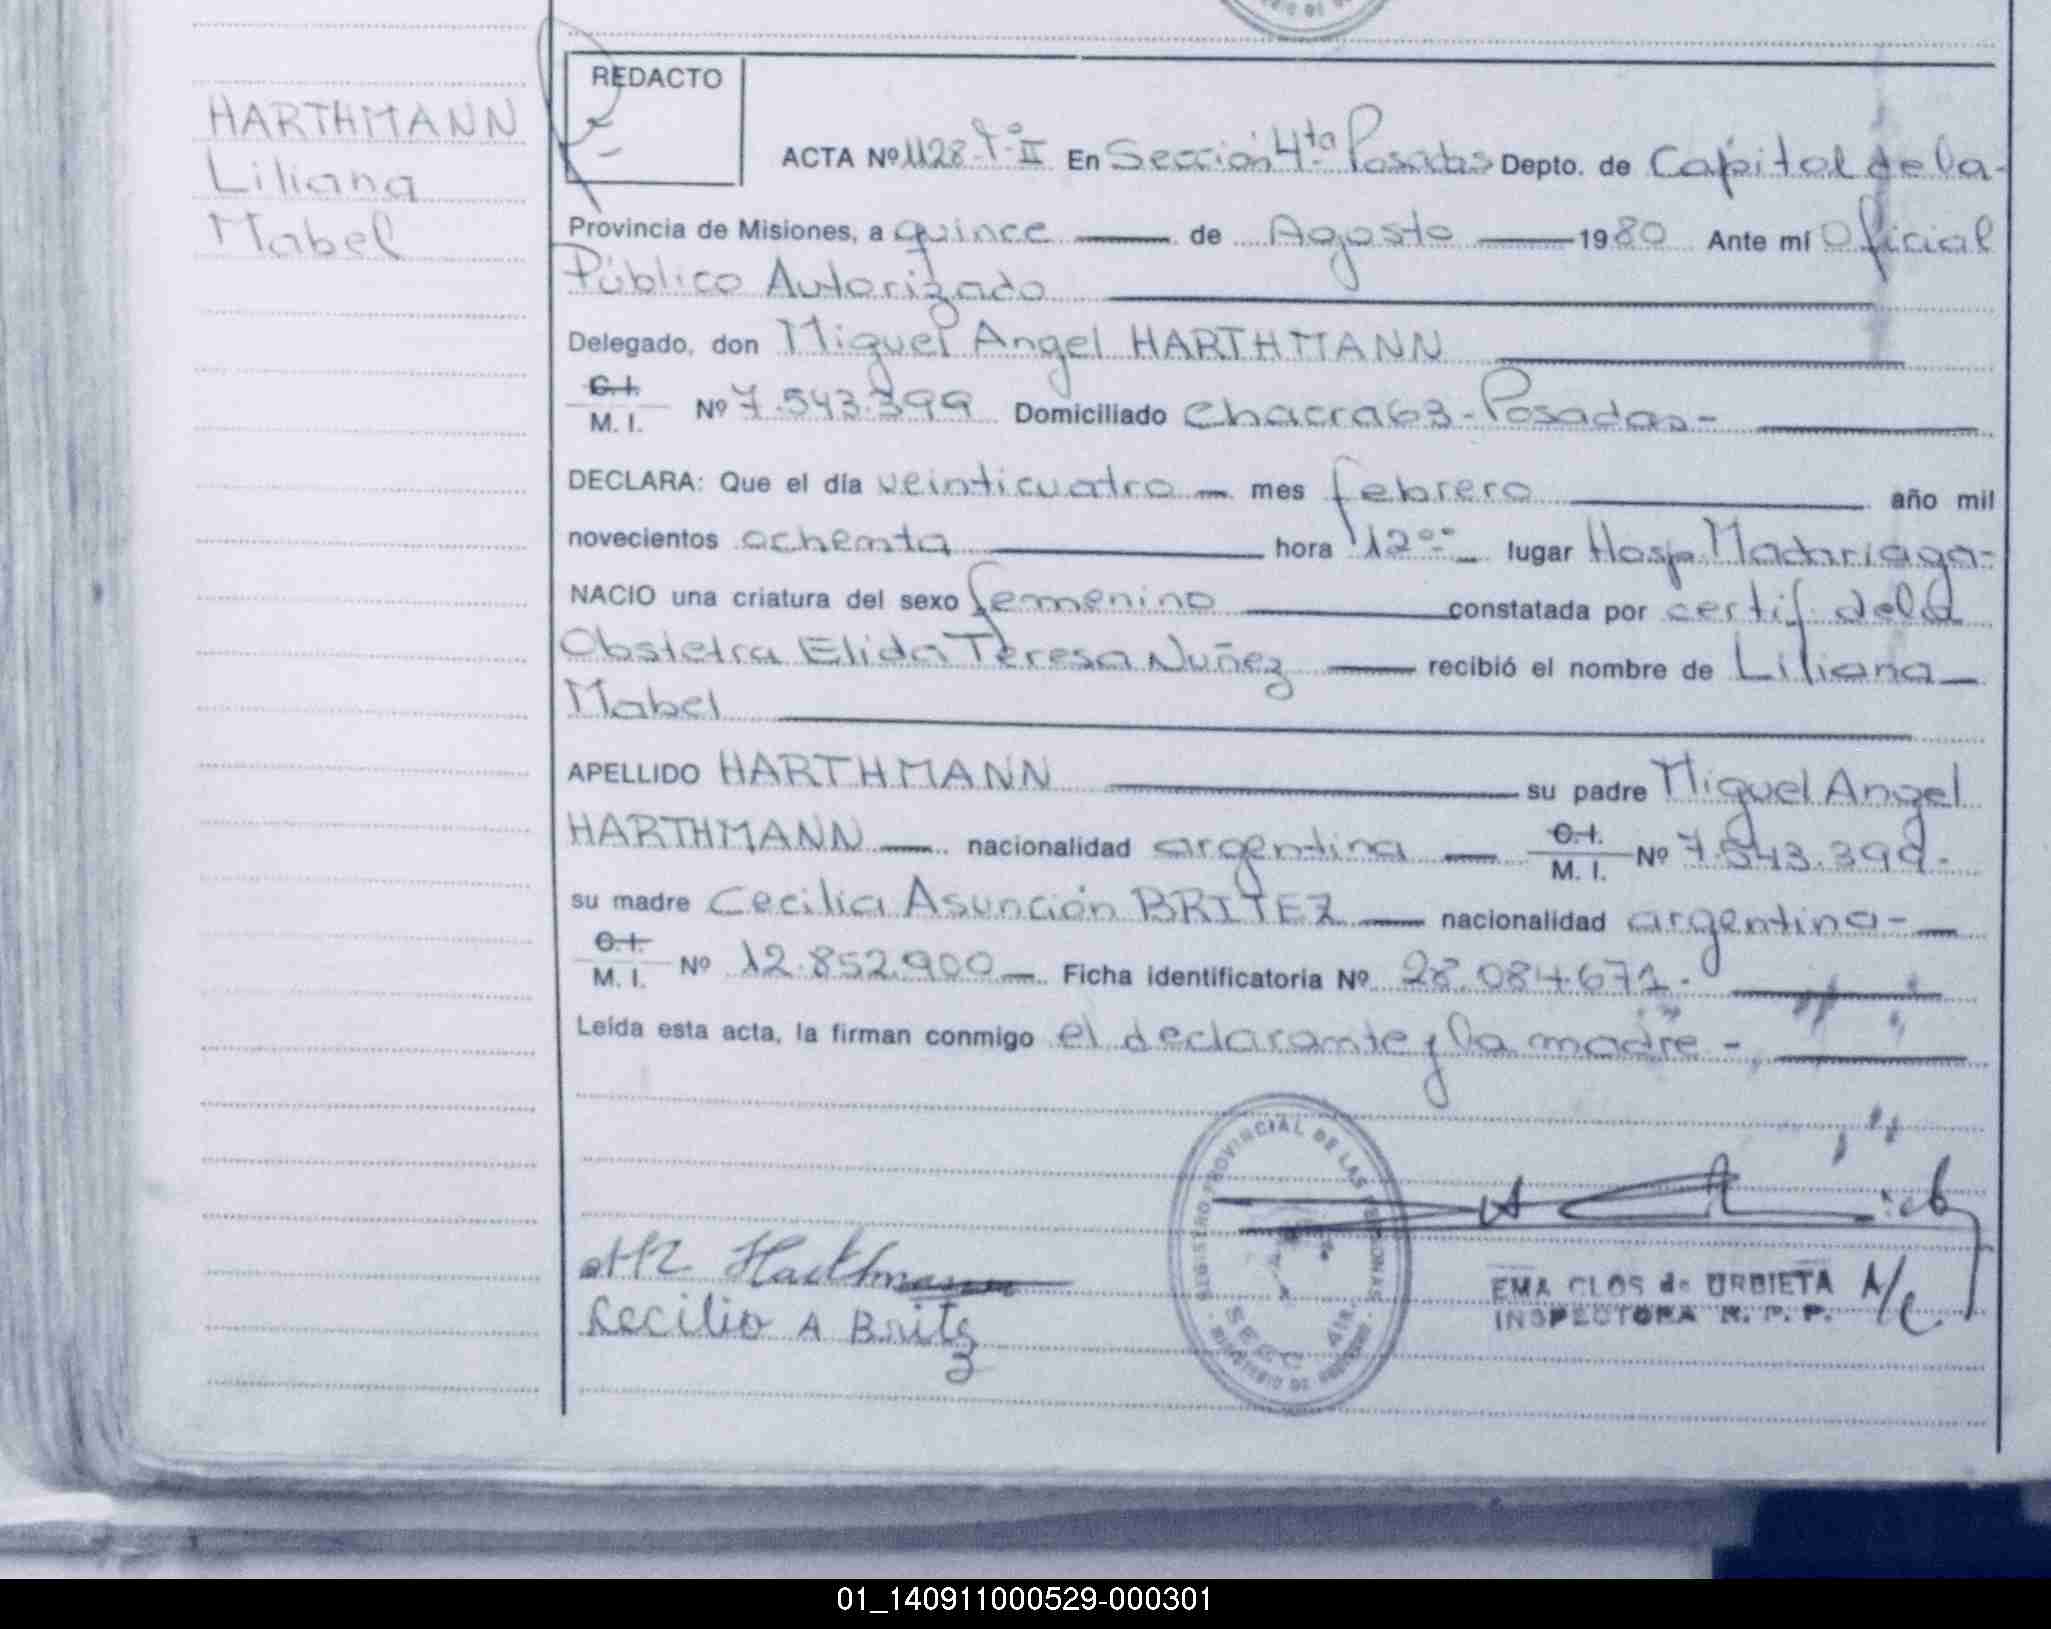 HARTHMANN
Liliana
Mabel
REDACTO
ACTA Nº 1128 Tº II En Sección 4ta Posadas Depto. de Capital de la-
Provincia de Misiones, a quince de Agosto 1980 Ante mí Oficial
Público Autorizado
Delegado, don Miguel Angel HARTHMANN
C.I.
M. I. Nº 7.543.399 Domiciliado Chacra 63-Posadas-
DECLARA: Que el día veinticuatro mes febrero año mil
novecientos ochenta hora 12°° lugar Hosp. Madariaga-
NACIO una criatura del sexo femenino constatada por certif. de la
Obstetra Elida Teresa Nuñez recibió el nombre de Liliana
Mabel
APELLIDO HARTHMANN su padre Miguel Angel
HARTHMANN nacionalidad argentina C.I. M. I. Nº 7.543.399-
su madre Cecilia Asunción BRITEZ nacionalidad argentina-
C.I.
M. I. Nº 12.852.900 Ficha identificatoria Nº 28.084.671-
Leída esta acta, la firman conmigo el declarante y la madre-
REGISTRO PROVINCIAL DE LAS PERSONAS
SECC. 4ta.
MINISTERIO DE GOBIERNO
Harthmann
Cecilia A Britez
EMA CLOS de URBIETA A/C.
INSPECTORA R. P. P.
01_140911000529-000301